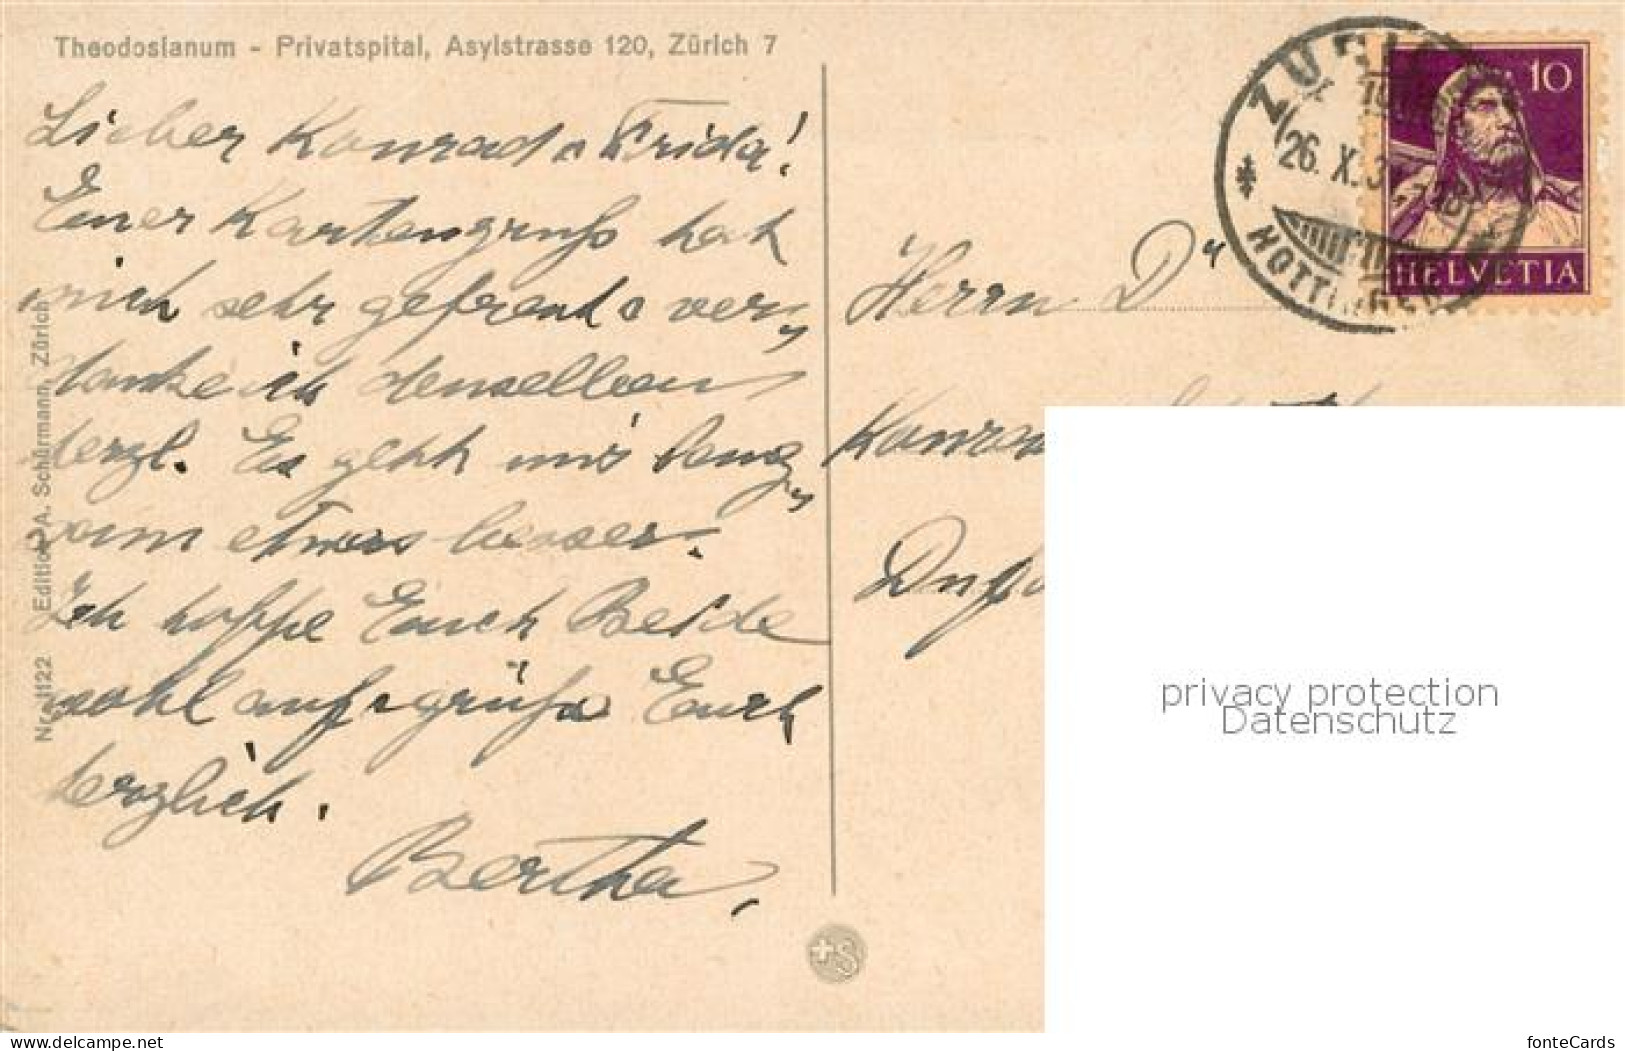 Theodosianum - Privatspital, Asylstrasse 120, Zürich 7
Lieber Konrad u Frida!
Euer Kartengruss hat
mich sehr gefreut u ver„
danke ich denselben
herzl. Es geht mir lang„
sam etwas besser.
Ich hoffe Euch Beide
wohl auf u grüsse Euch
herzlich.
Bertha.
Nr. 1122 Edition A. Schürmann, Zürich
ZÜRICH
26. X. 3
HOTTINGEN
10
HELVETIA
Herrn Dr
Konrad
+S
privacy protection
Datenschutz
www.delcampe.net
fonteCards